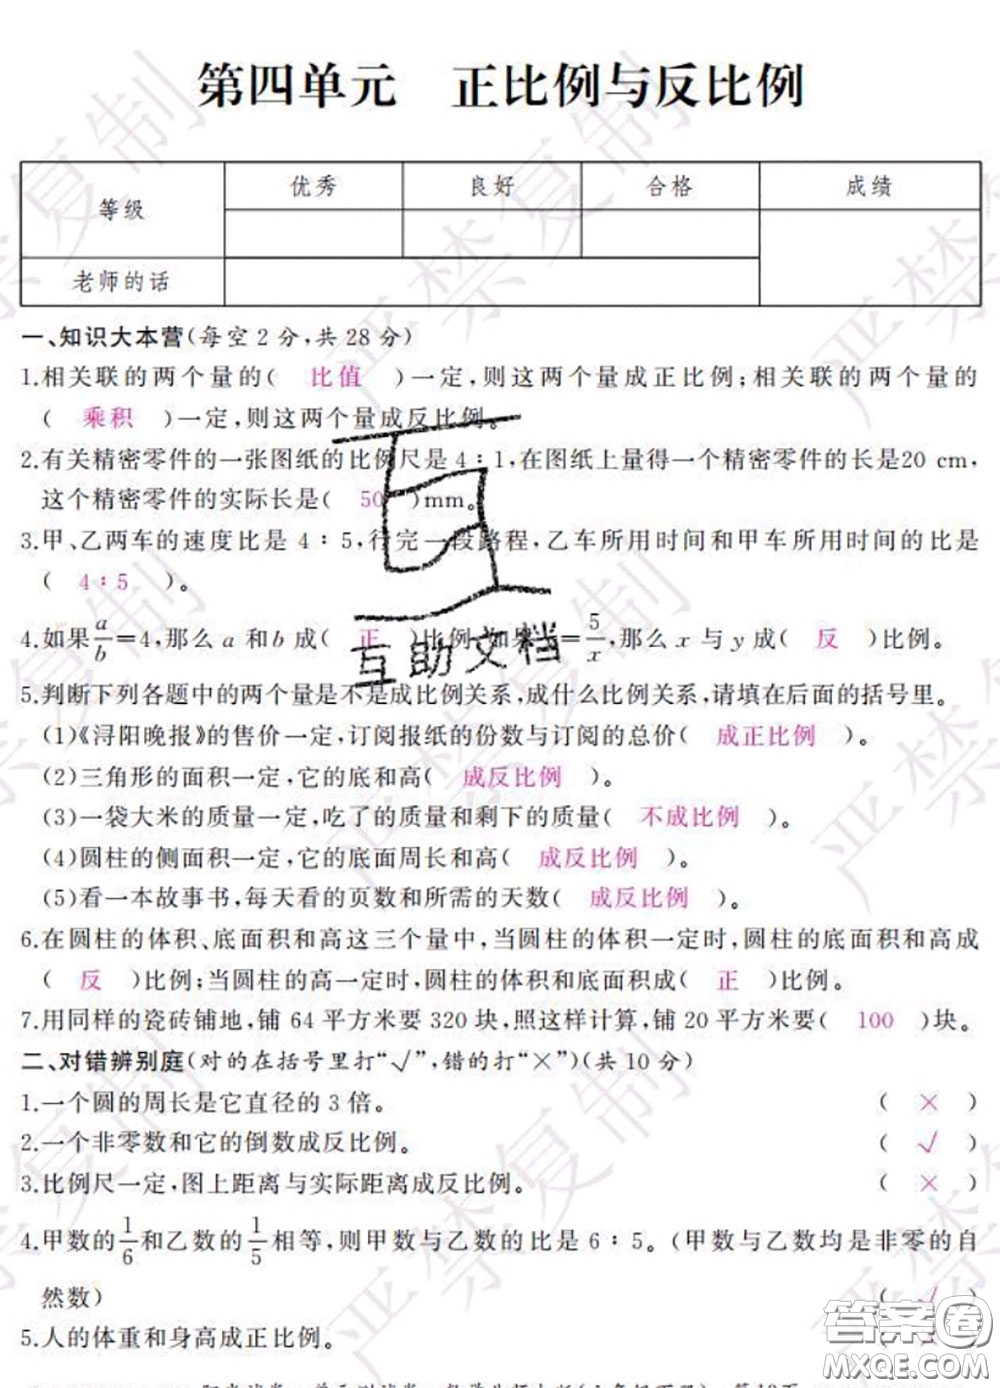 第四单元 正比例与反比例
等级 优秀 良好 合格 成绩
老师的话
一、知识大本营(每空2分,共28分)
1.相关联的两个量的( 比值 )一定,则这两个量成正比例;相关联的两个量的
( 乘积 )一定,则这两个量成反比例。
2.有关精密零件的一张图纸的比例尺是4∶1,在图纸上量得一个精密零件的长是20 cm,
这个精密零件的实际长是( 50 )mm。
3.甲、乙两车的速度比是4∶5,行完一段路程,乙车所用时间和甲车所用时间的比是
( 4∶5 )。
4.如果a/b=4,那么a和b成( 正 )比例,如果 =5/x,那么x与y成( 反 )比例。
互助文档
5.判断下列各题中的两个量是不是成比例关系,成什么比例关系,请填在后面的括号里。
(1)《浔阳晚报》的售价一定,订阅报纸的份数与订阅的总价( 成正比例 )。
(2)三角形的面积一定,它的底和高( 成反比例 )。
(3)一袋大米的质量一定,吃了的质量和剩下的质量( 不成比例 )。
(4)圆柱的侧面积一定,它的底面周长和高( 成反比例 )。
(5)看一本故事书,每天看的页数和所需的天数( 成反比例 )。
6.在圆柱的体积、底面积和高这三个量中,当圆柱的体积一定时,圆柱的底面积和高成
( 反 )比例;当圆柱的高一定时,圆柱的体积和底面积成( 正 )比例。
7.用同样的瓷砖铺地,铺64平方米要320块,照这样计算,铺20平方米要( 100 )块。
二、对错辨别庭(对的在括号里打“√”,错的打“×”)(共10分)
1.一个圆的周长是它直径的3倍。 ( × )
2.一个非零数和它的倒数成反比例。 ( √ )
3.比例尺一定,图上距离与实际距离成反比例。 ( × )
4.甲数的1/6和乙数的1/5相等,则甲数与乙数的比是6∶5。(甲数与乙数均是非零的自
然数) ( √ )
5.人的体重和身高成正比例。
答案圈
MXQE.COM
严禁复制